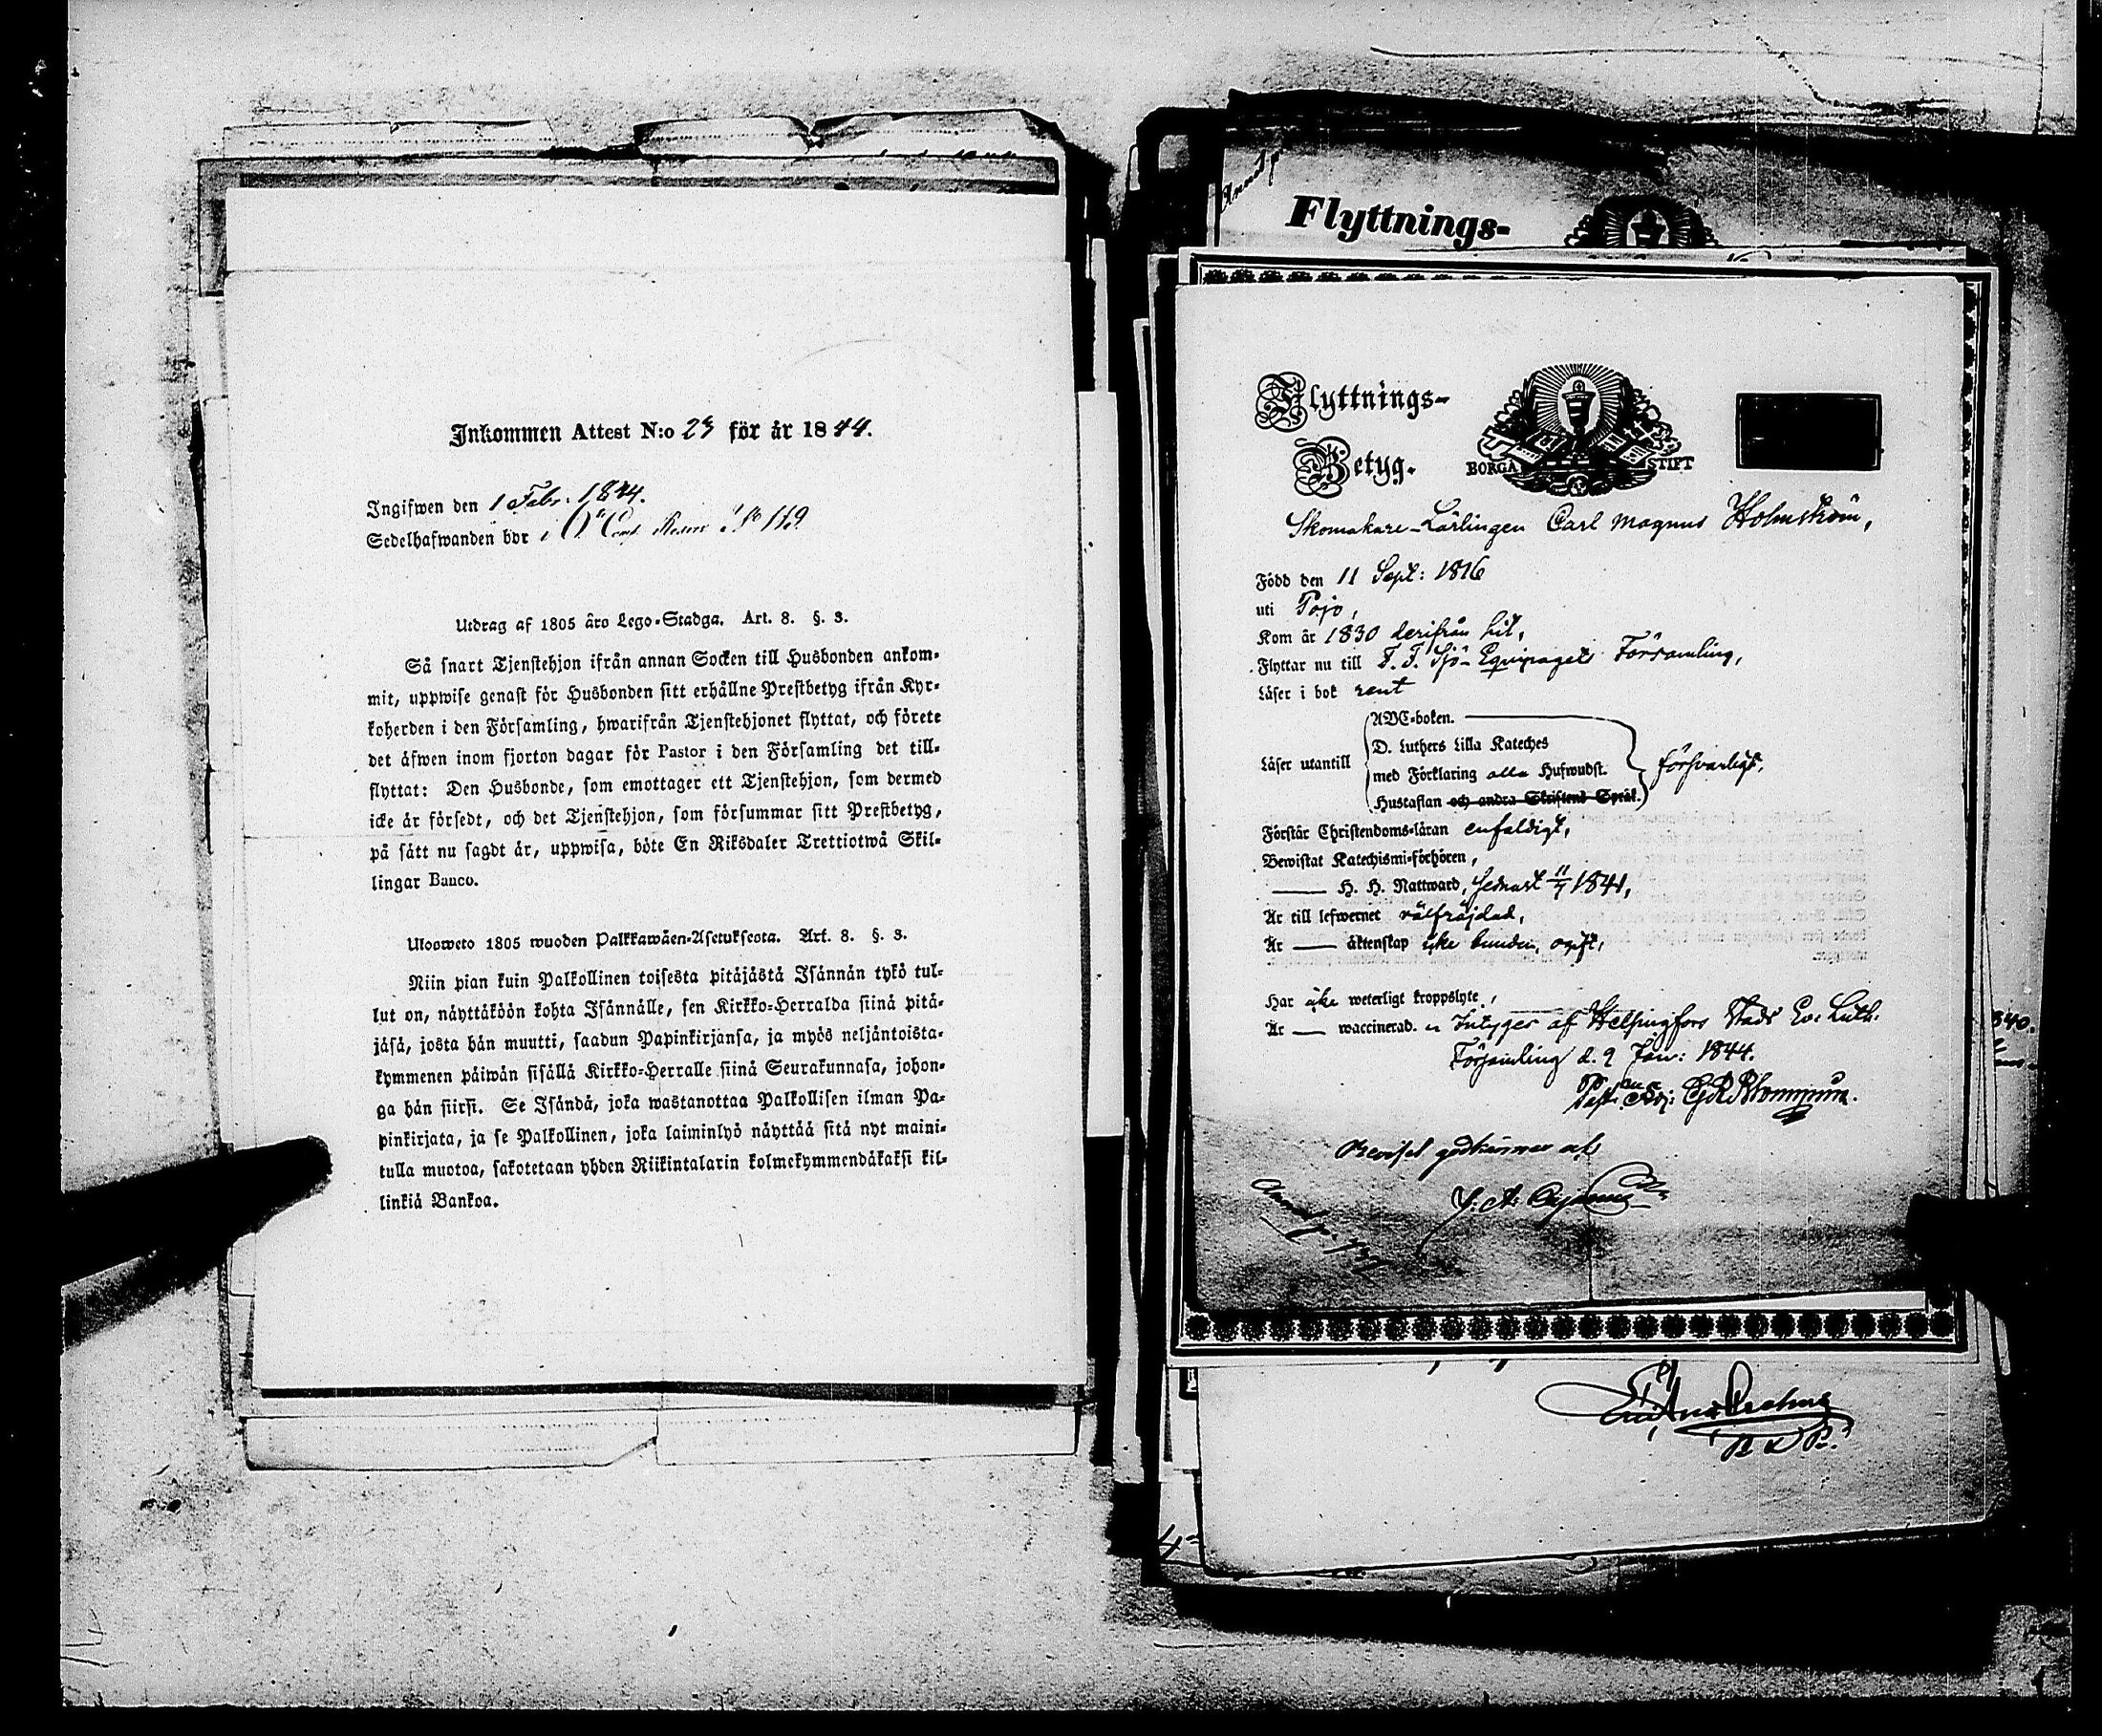 Inkommen Attest N:o 23 för år 1844.
Ingifwen den 1 Febr. 1844.
Sedelhafwanden bor i No 119
Utdrag af 1805 åro Lego-Stadga. Art. 8. §. 3.
Så snart Tjenstehjon ifrån annan Socken till Husbonden ankom-
mit, uppwise genast för Husbonden sitt erhållne Prestbetyg ifrån Kyr-
koherden i den Församling, hwarifrån Tjenstehjonet flyttat, och förete
det äfwen inom fjorton dagar för Pastor i den Församling det till-
flyttat: Den Husbonde, som emottager ett Tjenstehjon, som dermed
icke är försedt, och det Tjenstehjon, som försummar sitt Prestbetyg,
på sätt nu sagdt är, uppwisa, böte En Riksdaler Trettiotwå Skil-
lingar Banco.
Ulosweto 1805 wuoden Palkkawäen-Asetuksesta. Art. 8. §. 3.
Niin pian kuin Palkollinen toisesta pitäjästä Isännän tykö tul-
lut on, näyttäköön kohta Isännälle, sen Kirkko-Herralda siinä pitä-
jäsä, josta hän muutti, saadun Papinkirjansa, ja myös neljäntoista-
kymmenen päiwän sisällä Kirkko-Herralle siinä Seurakunnasa, johon-
ga hän siirsi. Se Isändä, joka wastanottaa Palkollisen ilman Pa-
pinkirjata, ja se Palkollinen, joka laiminlyö näyttää sitä nyt maini-
tulla muotoa, sakotetaan yhden Riikintalarin kolmekymmendäkaksi kil-
linkiä Bankoa.
Flyttnings-
Flyttnings-
Betyg.
BORGÅ STIFT
Skomakare-Lärlingen Carl Magnus Holmström,
Född den 11 Sept: 1816
uti Pojo,
Kom år 1830 derifrån hit,
Flyttar nu till F. F. Sjö-Equipagets Församling,
Läser i bok rent
ABC-boken.
D. Luthers Lilla Kateches
Läser utantill med Förklaring alla Hufwudst. försvarligt,
Hustaflan och andra Skriftens Språk.
Förstår Christendoms-läran enfaldigt,
Bewistat Katechismi-förhören,
H. H. Nattward, sednast 11/7 1841,
Är till lefwernet välfräjdad,
Är äktenskap icke bunden, ogift,
Har icke weterligt kroppslyte,
Är waccinerad. Intygar af Helsingfors Stads Ev. Luth.
Församling d. 9 Jan: 1844.
840.